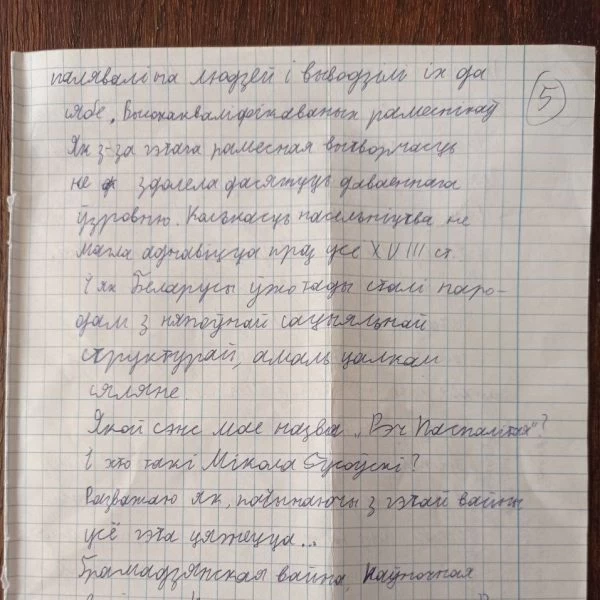 палявалі на людзей і выводзілі іх да
сябе. Высокакваліфікаваных рамеснікаў
Як з-за гэтага рамесная вытворчасць
не здолела дасягнуць даваеннага
ўзроўню. Колькасць насельніцтва не
магла аднавіцца праз усё XVIII ст.
І як Беларусы ўжо тады сталі наро-
дам з няпоўнай сацыяльнай
структурай, амаль цалкам
сяляне.
Якой сэнс мае назва „Рэч Паспалітая"?
І хто такі Мікола Гусоўскі?
Разважаю як, пачынаючы з гэтай вайны
усё гэта цягнецца...
Грамадзянская вайна, Паўночная
5